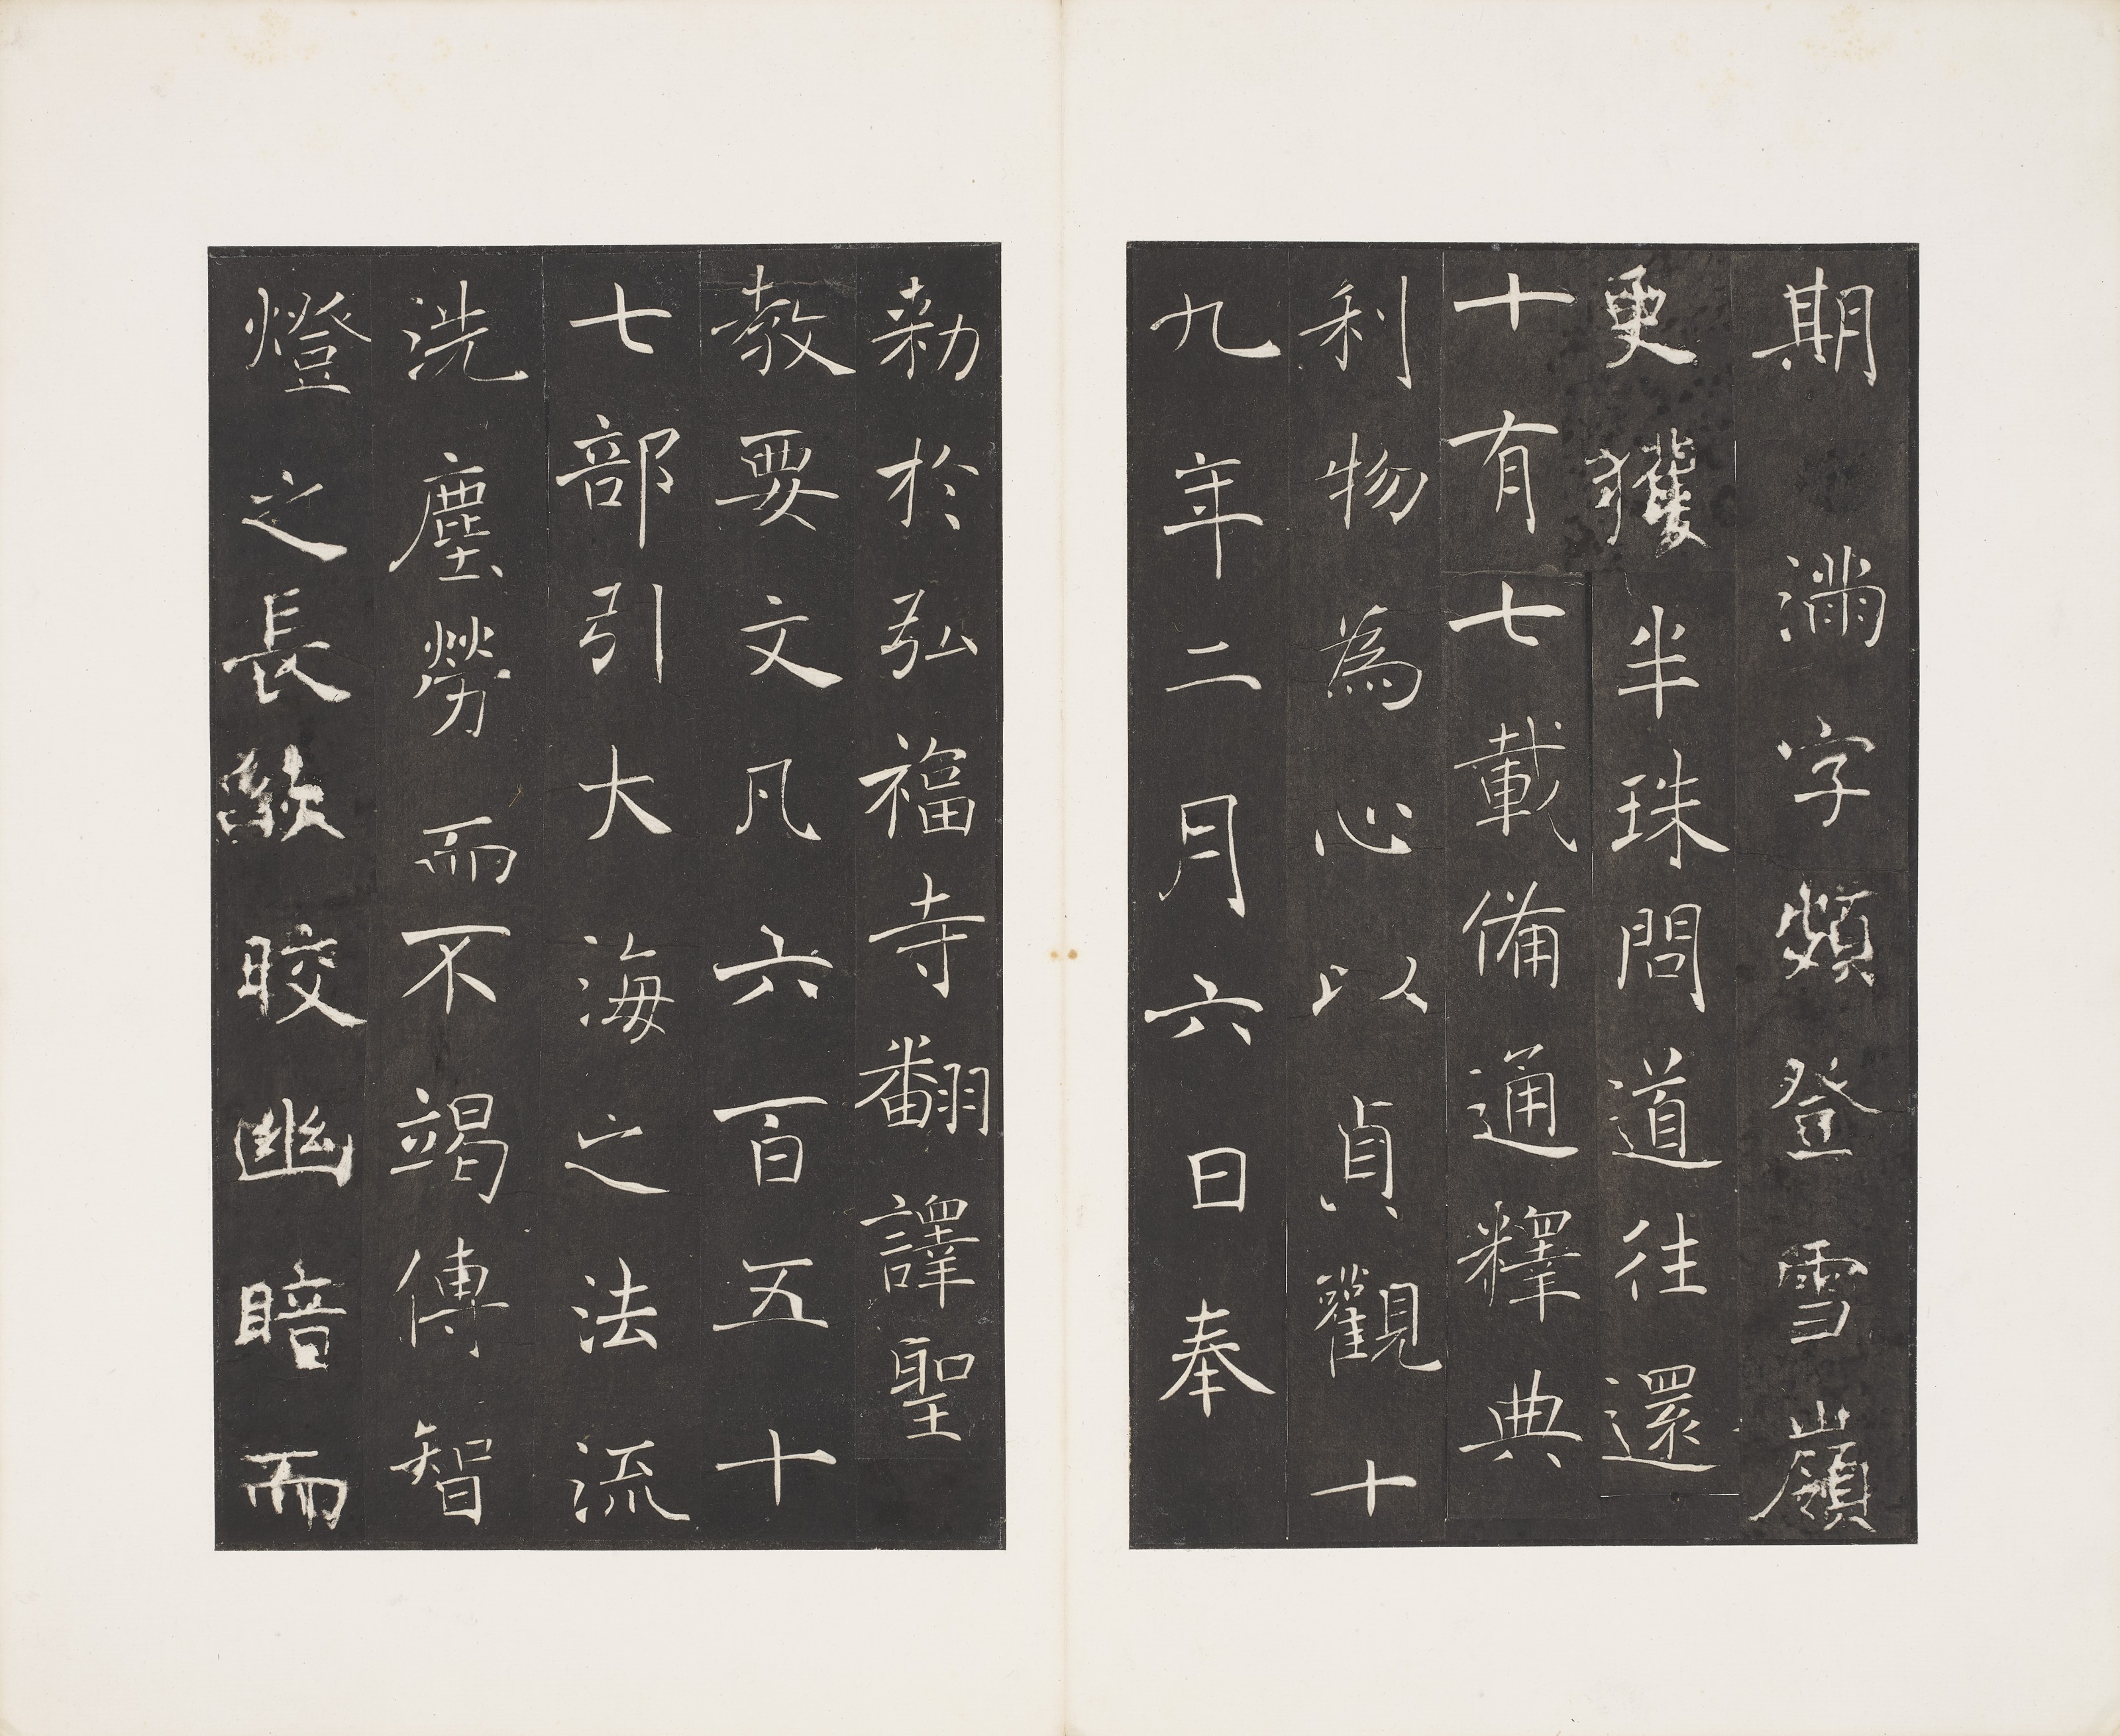 期滿字頻登雪嶺
更獲半珠問道往還
十有七載備通釋典
利物為心以貞觀十
九年二月六日奉
勑於弘福寺翻譯聖
教要文凡六百五十
七部引大海之法流
洗塵勞而不竭傳智
燈之長焰皎幽暗而